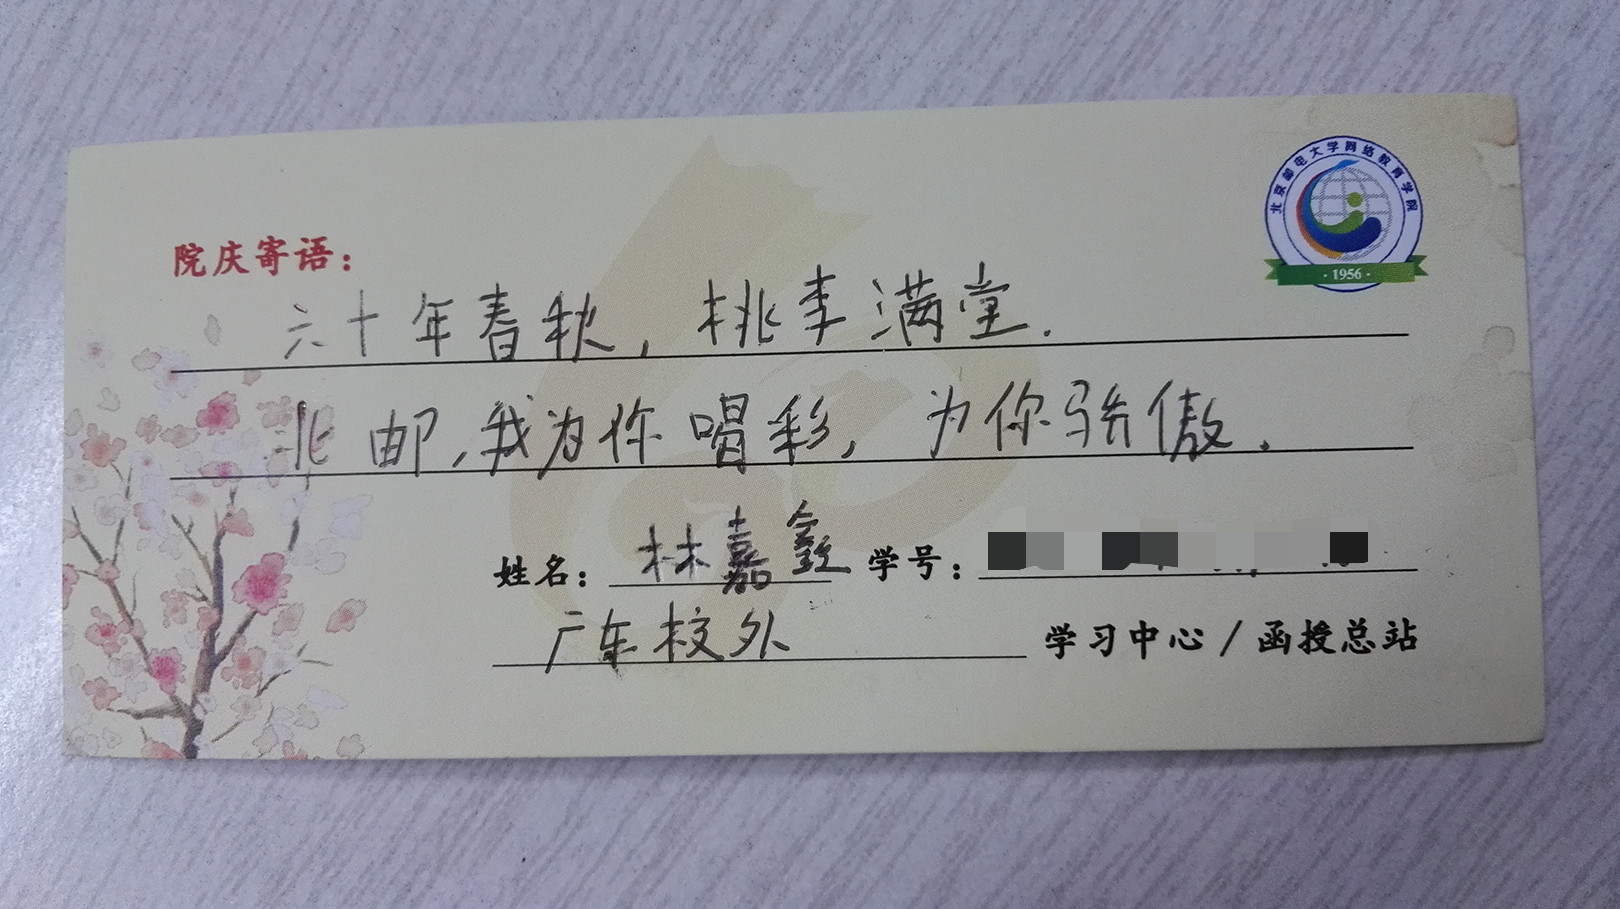 北京邮电大学网络教育学院
·1956·
院庆寄语：
六十年春秋，桃李满堂.
北邮,我为你喝彩,为你骄傲.
姓名：林嘉鑫 学号：
广东校外 学习中心/函授总站